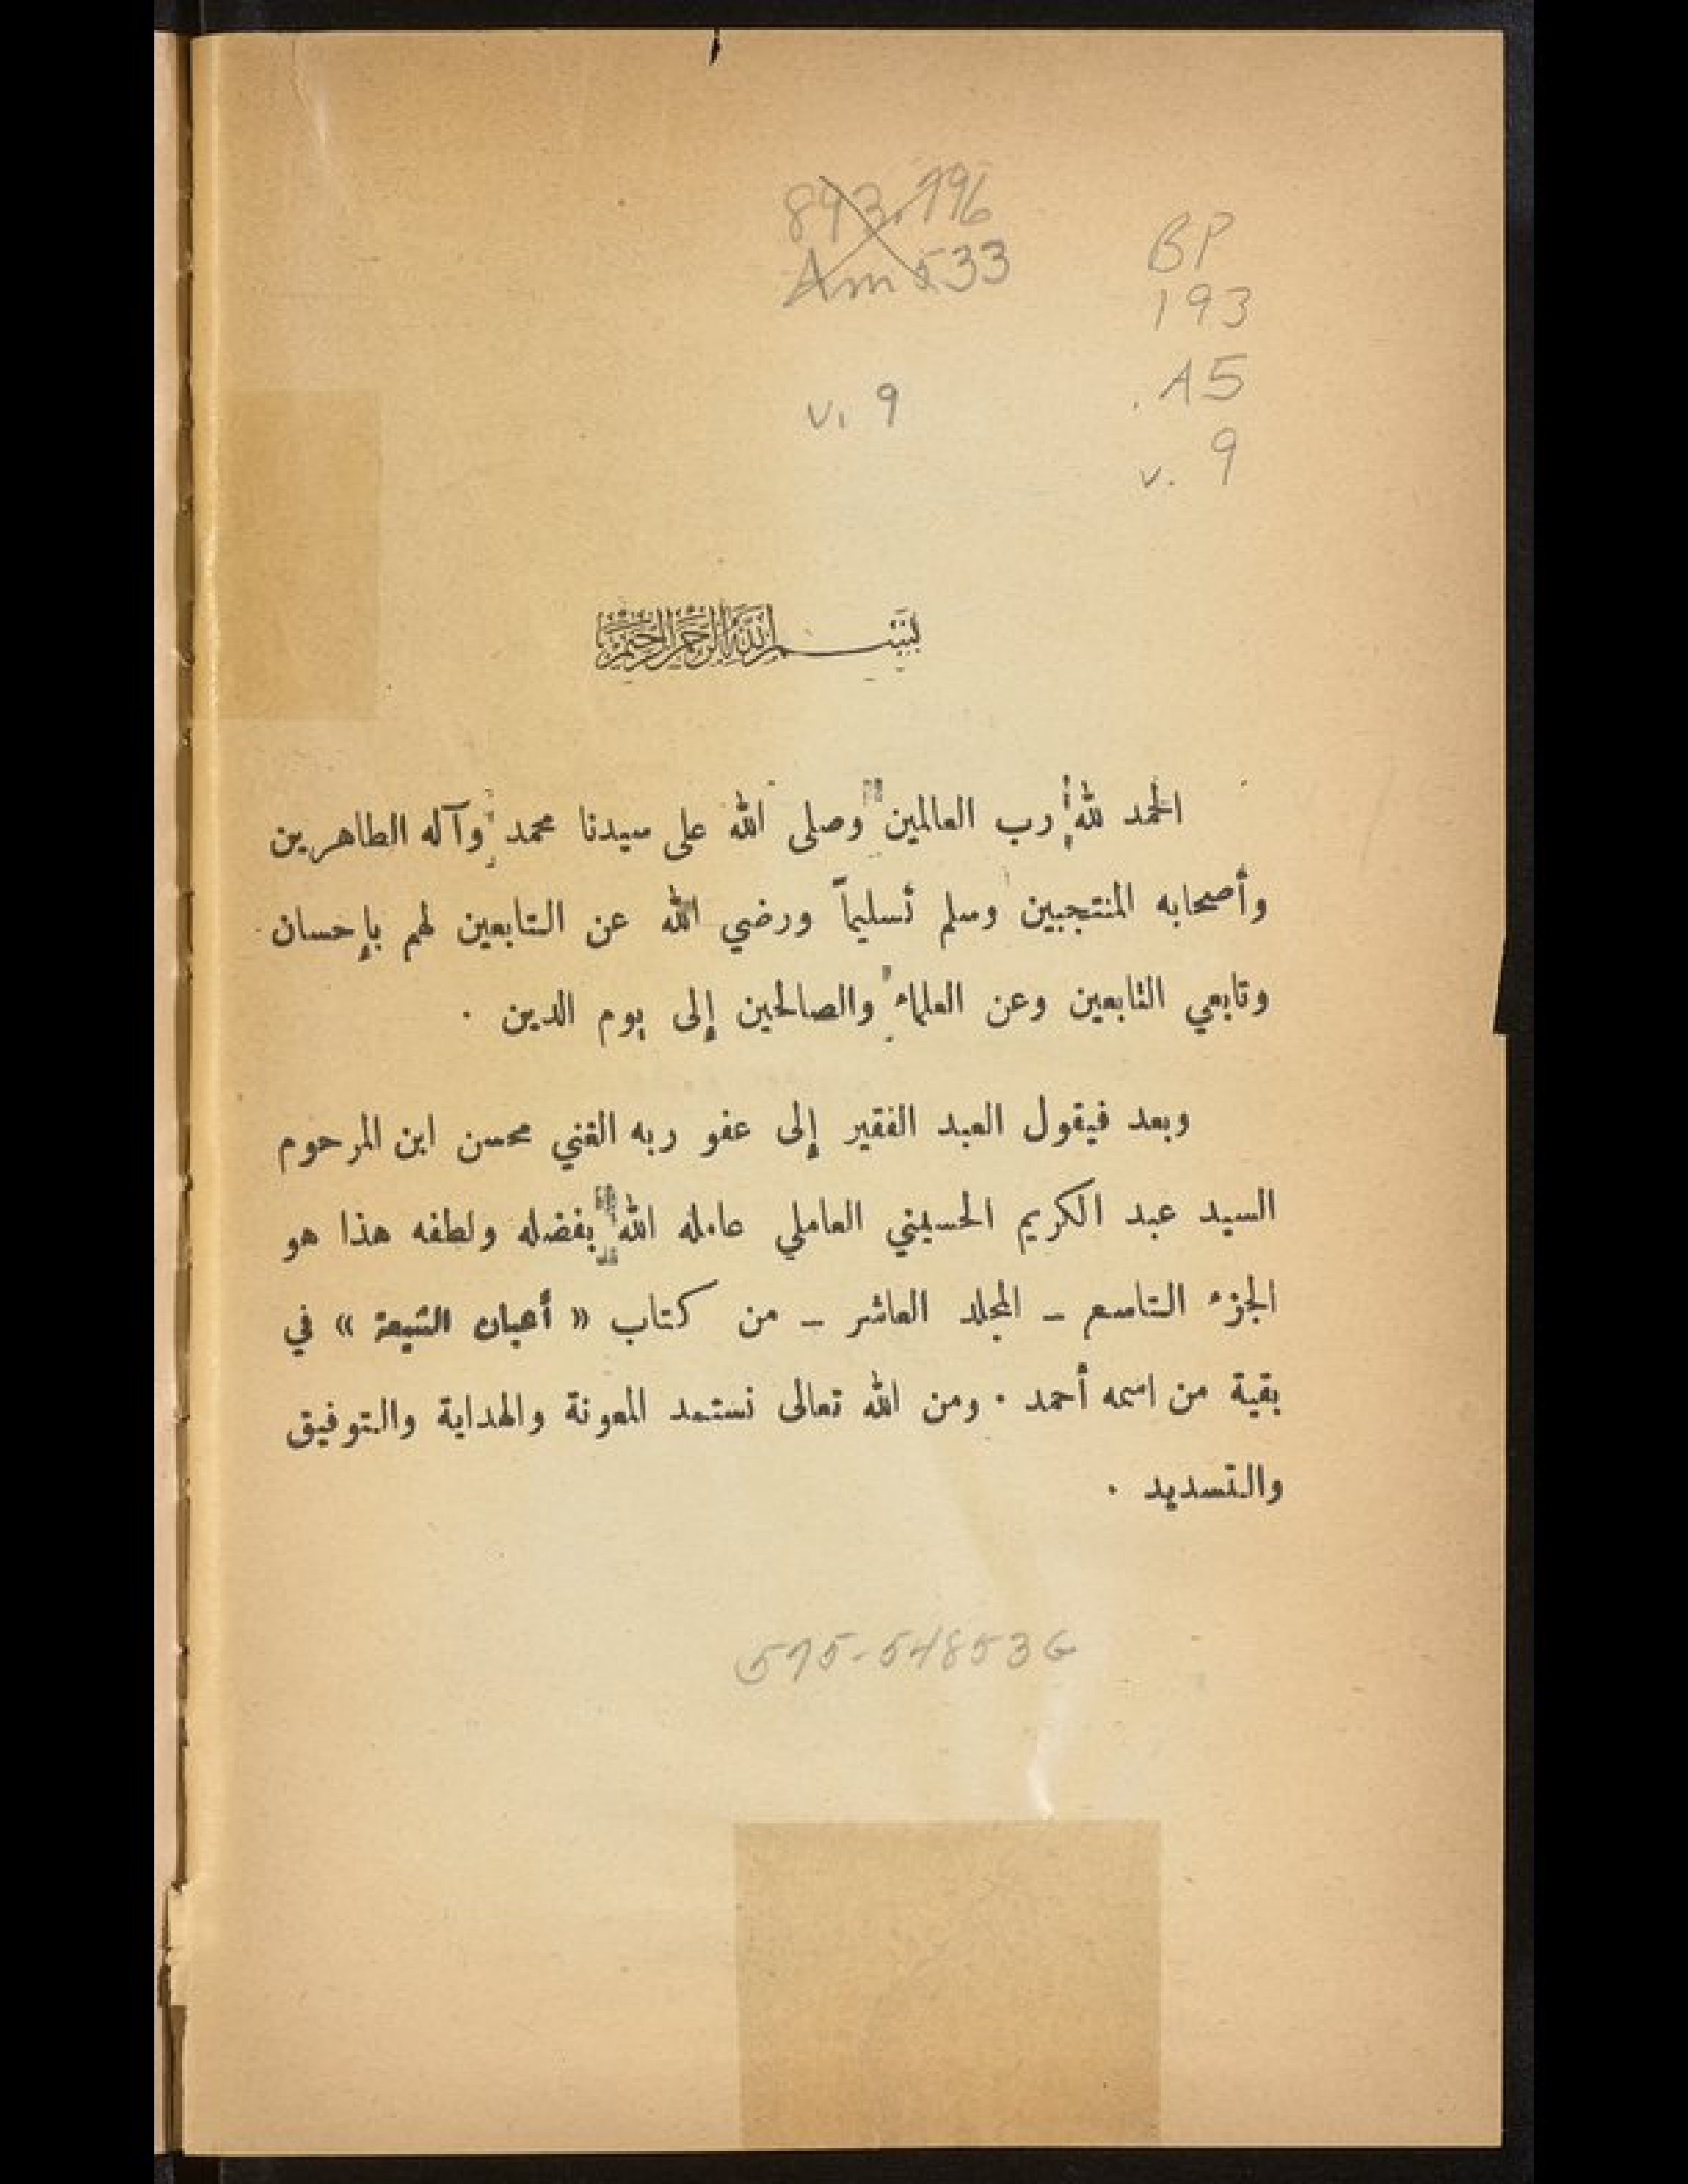 893.796
Am 533
v. 9
BP
193
.A5
v. 9
بسم الله الرحمن الرحيم
الحمد لله رب العالمين وصلى الله على سيدنا محمد وآله الطاهرين
وأصحابه المنتجبين وسلم تسليماً ورضي الله عن التابعين لهم بإحسان
وتابعي التابعين وعن العلماء والصالحين إلى يوم الدين .
وبعد فيقول العبد الفقير إلى عفو ربه الغني محسن ابن المرحوم
السيد عبد الكريم الحسيني العاملي عامله الله بفضله ولطفه هذا هو
الجزء التاسع – المجلد العاشر – من كتاب « أعيان الشيعة » في
بقية من اسمه أحمد . ومن الله تعالى نستمد المعونة والهداية والتوفيق
والتسديد .